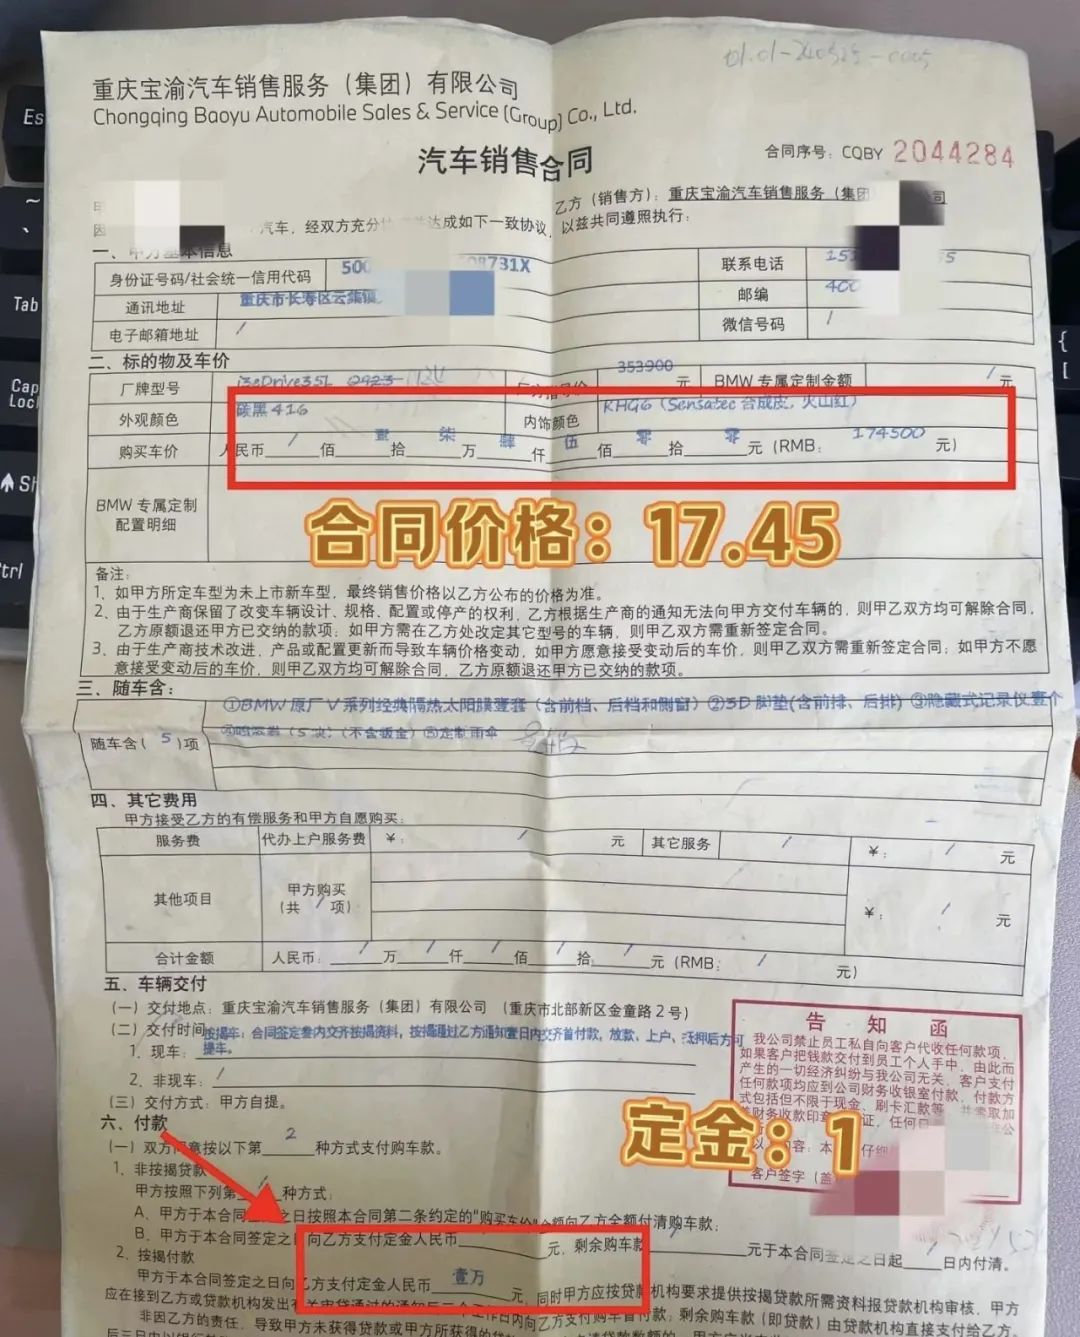 01.01-240525-0005
重庆宝渝汽车销售服务（集团）有限公司
Chongqing Baoyu Automobile Sales & Service (Group) Co., Ltd.
汽车销售合同
合同序号：CQBY 2044284
乙方（销售方）：重庆宝渝汽车销售服务（集团
汽车，经双方充分 达成如下一致协议，以兹共同遵照执行：
一、甲方基本信息
身份证号码/社会统一信用代码 500 08731X 联系电话 15 5
通讯地址 重庆市长寿区云集镇 邮编 400
电子邮箱地址 / 微信号码 /
二、标的物及车价
厂牌型号 i3eDrive35L 353900 元 BMW 专属定制金额 / 元
外观颜色 碳黑416 内饰颜色 KHG6（Sensatec 合成皮，火山红）
购买车价 人民币 / 佰 壹 拾 柒 万 肆 仟 伍 佰 零 拾 零 元（RMB： 174500 元）
BMW 专属定制
配置明细
合同价格：17.45
备注：
1、如甲方所定车型为未上市新车型，最终销售价格以乙方公布的价格为准。
2、由于生产商保留了改变车辆设计、规格、配置或停产的权利，乙方根据生产商的通知无法向甲方交付车辆的，则甲乙双方均可解除合同，
乙方原额退还甲方已交纳的款项；如甲方需在乙方处改定其它型号的车辆，则甲乙双方需重新签定合同。
3、由于生产商技术改进、产品或配置更新而导致车辆价格变动，如甲方愿意接受变动后的车价，则甲乙双方需重新签定合同；如甲方不愿
意接受变动后的车价，则甲乙双方均可解除合同，乙方原额退还甲方已交纳的款项。
三、随车含：
随车含（ 5 ）项 ①BMW原厂V系列经典隔热太阳膜壹套（含前档、后档和侧窗）②3D脚垫(含前排、后排) ③隐藏式记录仪壹个
（5次）（不含钣金）⑤定制雨伞
四、其它费用
甲方接受乙方的有偿服务和甲方自愿购买：
服务费 代办上户服务费 ¥： / 元 其它服务 / ¥： / 元
其他项目 甲方购买
（共 / 项） ¥： / 元
合计金额 人民币： / 万 / 仟 / 佰 / 拾 / 元（RMB： / 元）
五、车辆交付
（一）交付地点：重庆宝渝汽车销售服务（集团）有限公司 （重庆市北部新区金童路2号）
（二）交付时间
按揭车：合同签定叁内交齐按揭资料，按揭通过乙方通知壹日内交齐首付款，放款、上户、抵押后方可
1、现车： 提车。
2、非现车： /
（三）交付方式：甲方自提。
告 知 函
我公司禁止员工私自向客户代收任何款项，
如果客户把钱款交付到员工个人手中，由此而
产生的一切经济纠纷与我公司无关，客户支付
任何款项均应到公司财务收银室付款，付款方
式包括但不限于现金、刷卡汇款等，并索取加
盖财务收款印章
客户签字（盖
定金：1
六、付款
（一）双方同意按以下第 2 种方式支付购车款。
1、非按揭贷款
甲方按照下列第 / 种方式：
A、甲方于本合同签定之日按照本合同第二条约定的“购买车价”金额向乙方全额付清购车款；
B、甲方于本合同签定之日向乙方支付定金人民币 元，剩余购车款 / 元于本合同签定之日起 / 日内付清。
2、按揭付款
甲方于本合同签定之日向乙方支付定金人民币 壹万 元，同时甲方应按贷款机构要求提供按揭贷款所需资料报贷款机构审核，甲方
应在接到乙方或贷款机构发出有关审贷通过的通知后三个工作日内向乙方支付购车首付款，剩余购车款（即贷款）由贷款机构直接支付给乙方
非因乙方的责任，导致甲方未获得贷款或甲方所获得的贷